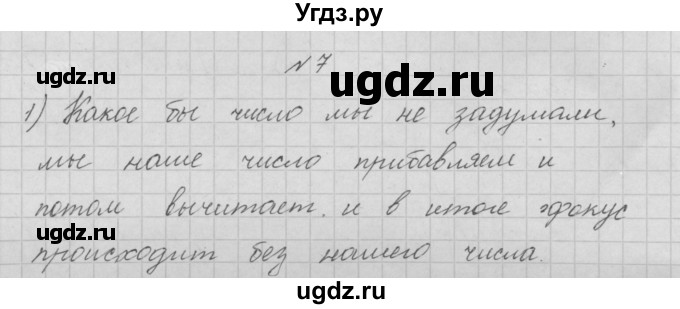 Угдз.ру
№7
ugdz.ru
1) Какое бы число мы не задумали,
мы наше число прибавляем и
ugdz.ru
потом вычитает. и в итоге фокус
ugdz.ru
ugdz.ru
происходит без нашего числа.
ugdz.ru